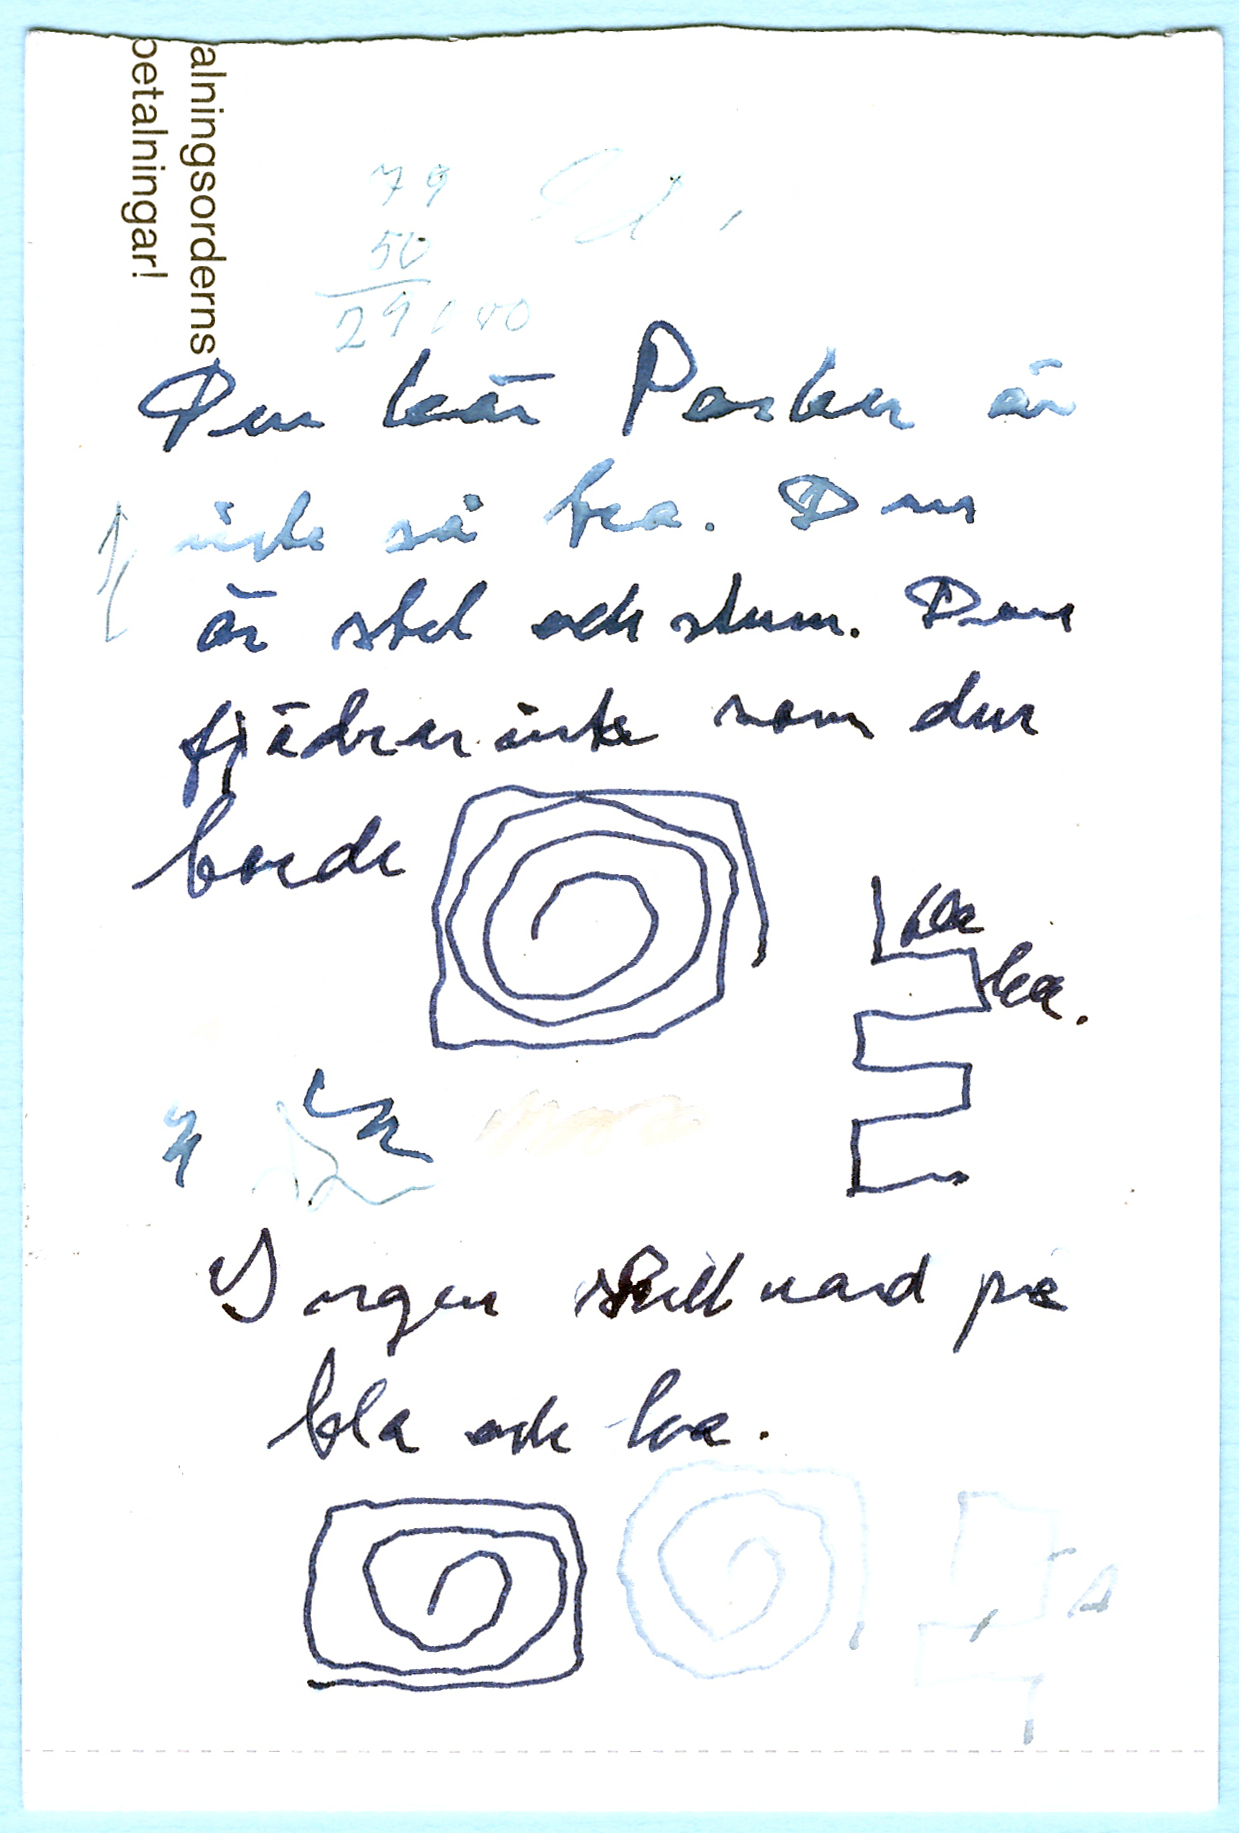 alningsorderns
betalningar!
79
50
29
Den här Parker är
inte så bra. Den
är stel och stum. Den
fjädrar inte som den
borde
bla
bla.
Ingen skillnad på
bla och bra.